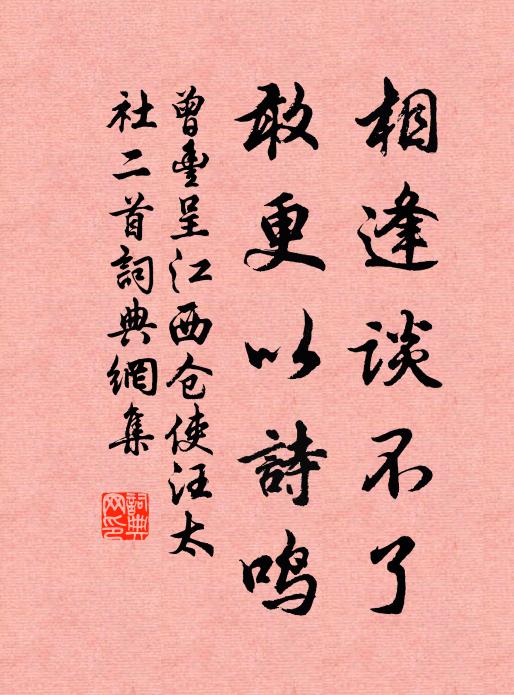 相逢谈不了
敢更以詩鸣
曾豊呈江西仓使汪太
社二首詞典網集
詞典网印